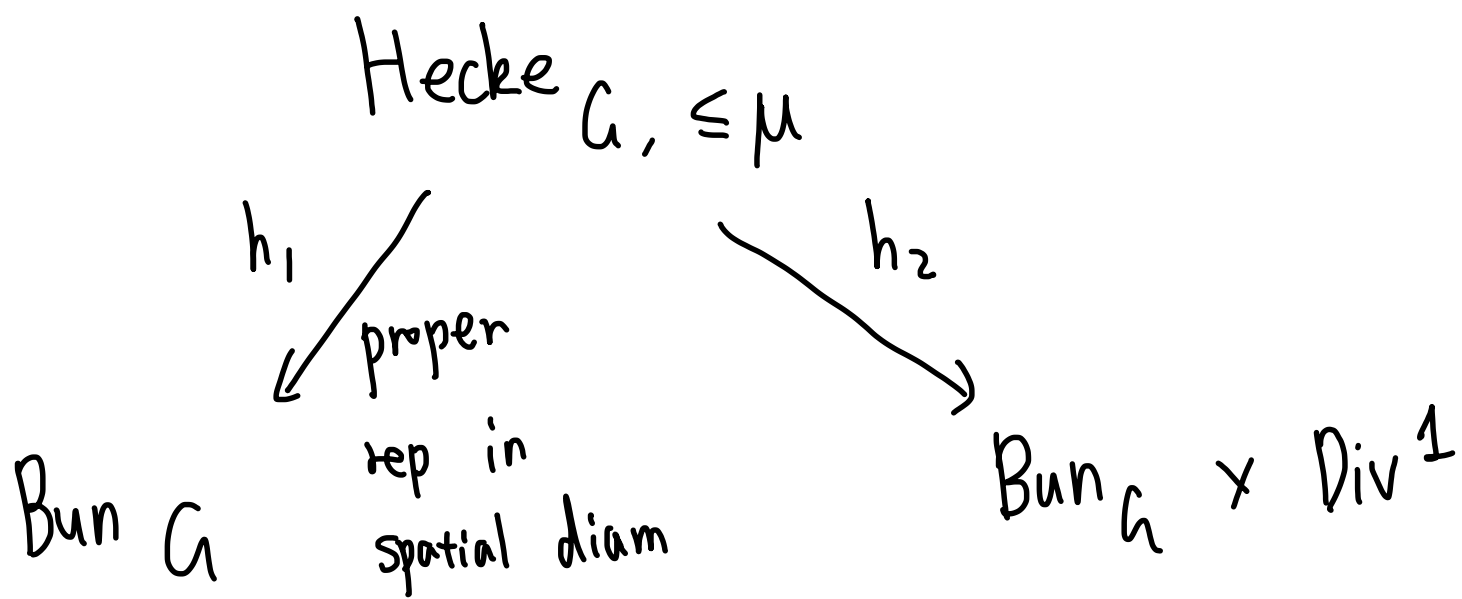 Hecke G, ≤ μ
h1
h2
proper
rep in
spatial diam
Bun G
Bun G × Div 1